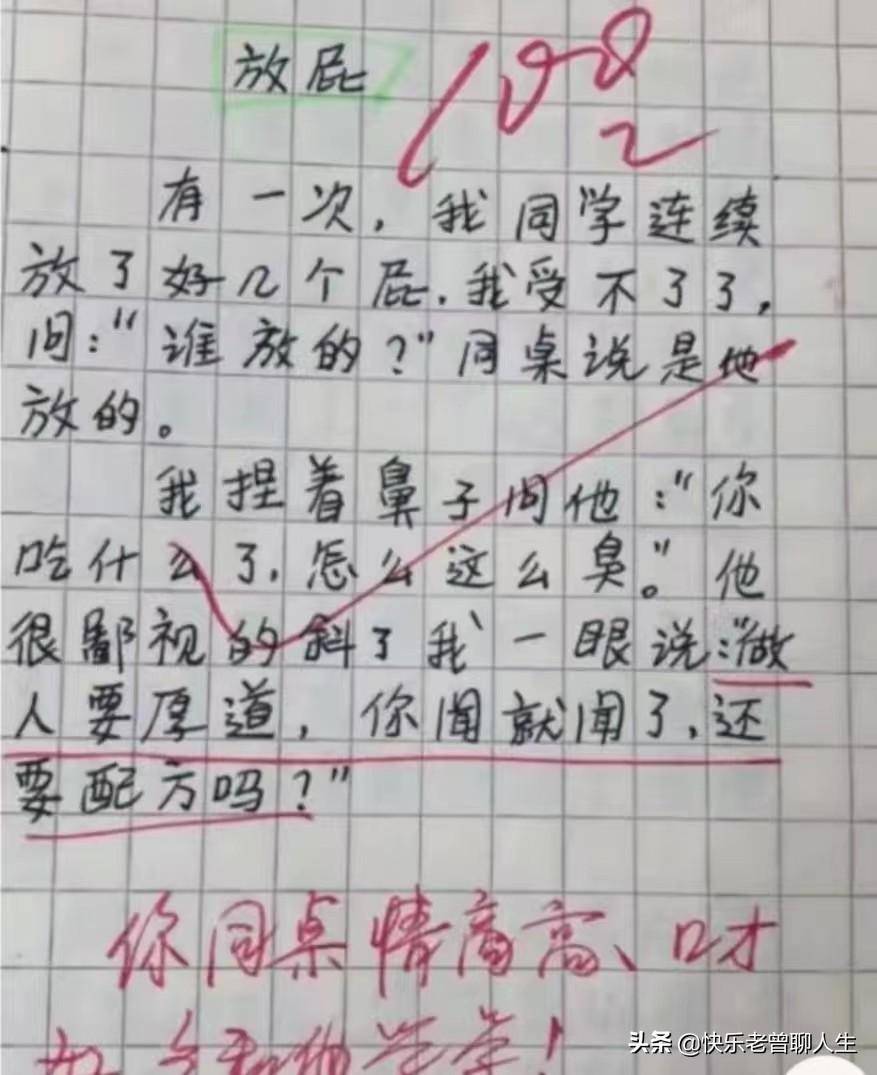 放屁
100
有一次，我同学连续
放了好几个屁，我受不了了，
问："谁放的？"同桌说是他
放的。
我捏着鼻子问他："你
吃什么了，怎么这么臭。"他
很鄙视的斜了我一眼说："做
人要厚道，你闻就闻了，还
要配方吗？"
你同桌情商高、口才
好
头条 @快乐老曾聊人生